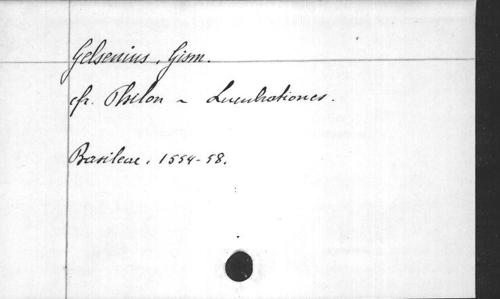 Gelsenius, Gism.
cfr. Philon ~ Lucubrationes.
Basileae. 1554-58.